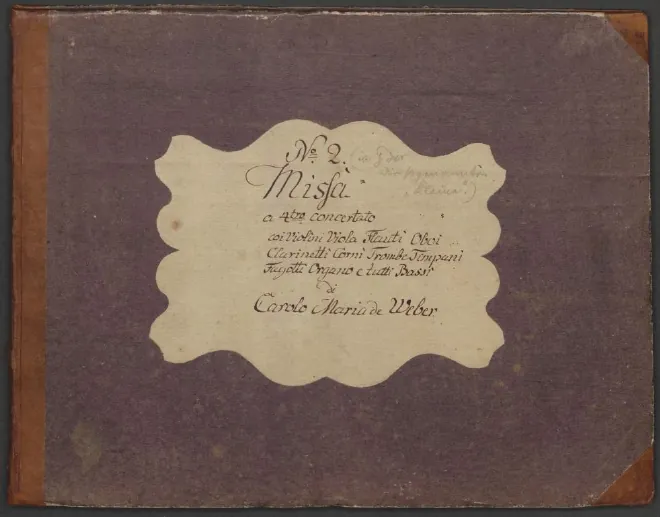 No. 2.
Missa
a 4tro concertato
coi Violini Viola Flauti Oboi
Clarinetti Corni Trombe Tempani
Fagotti Organo e tutti Bassi
di
Carolo Maria de Weber